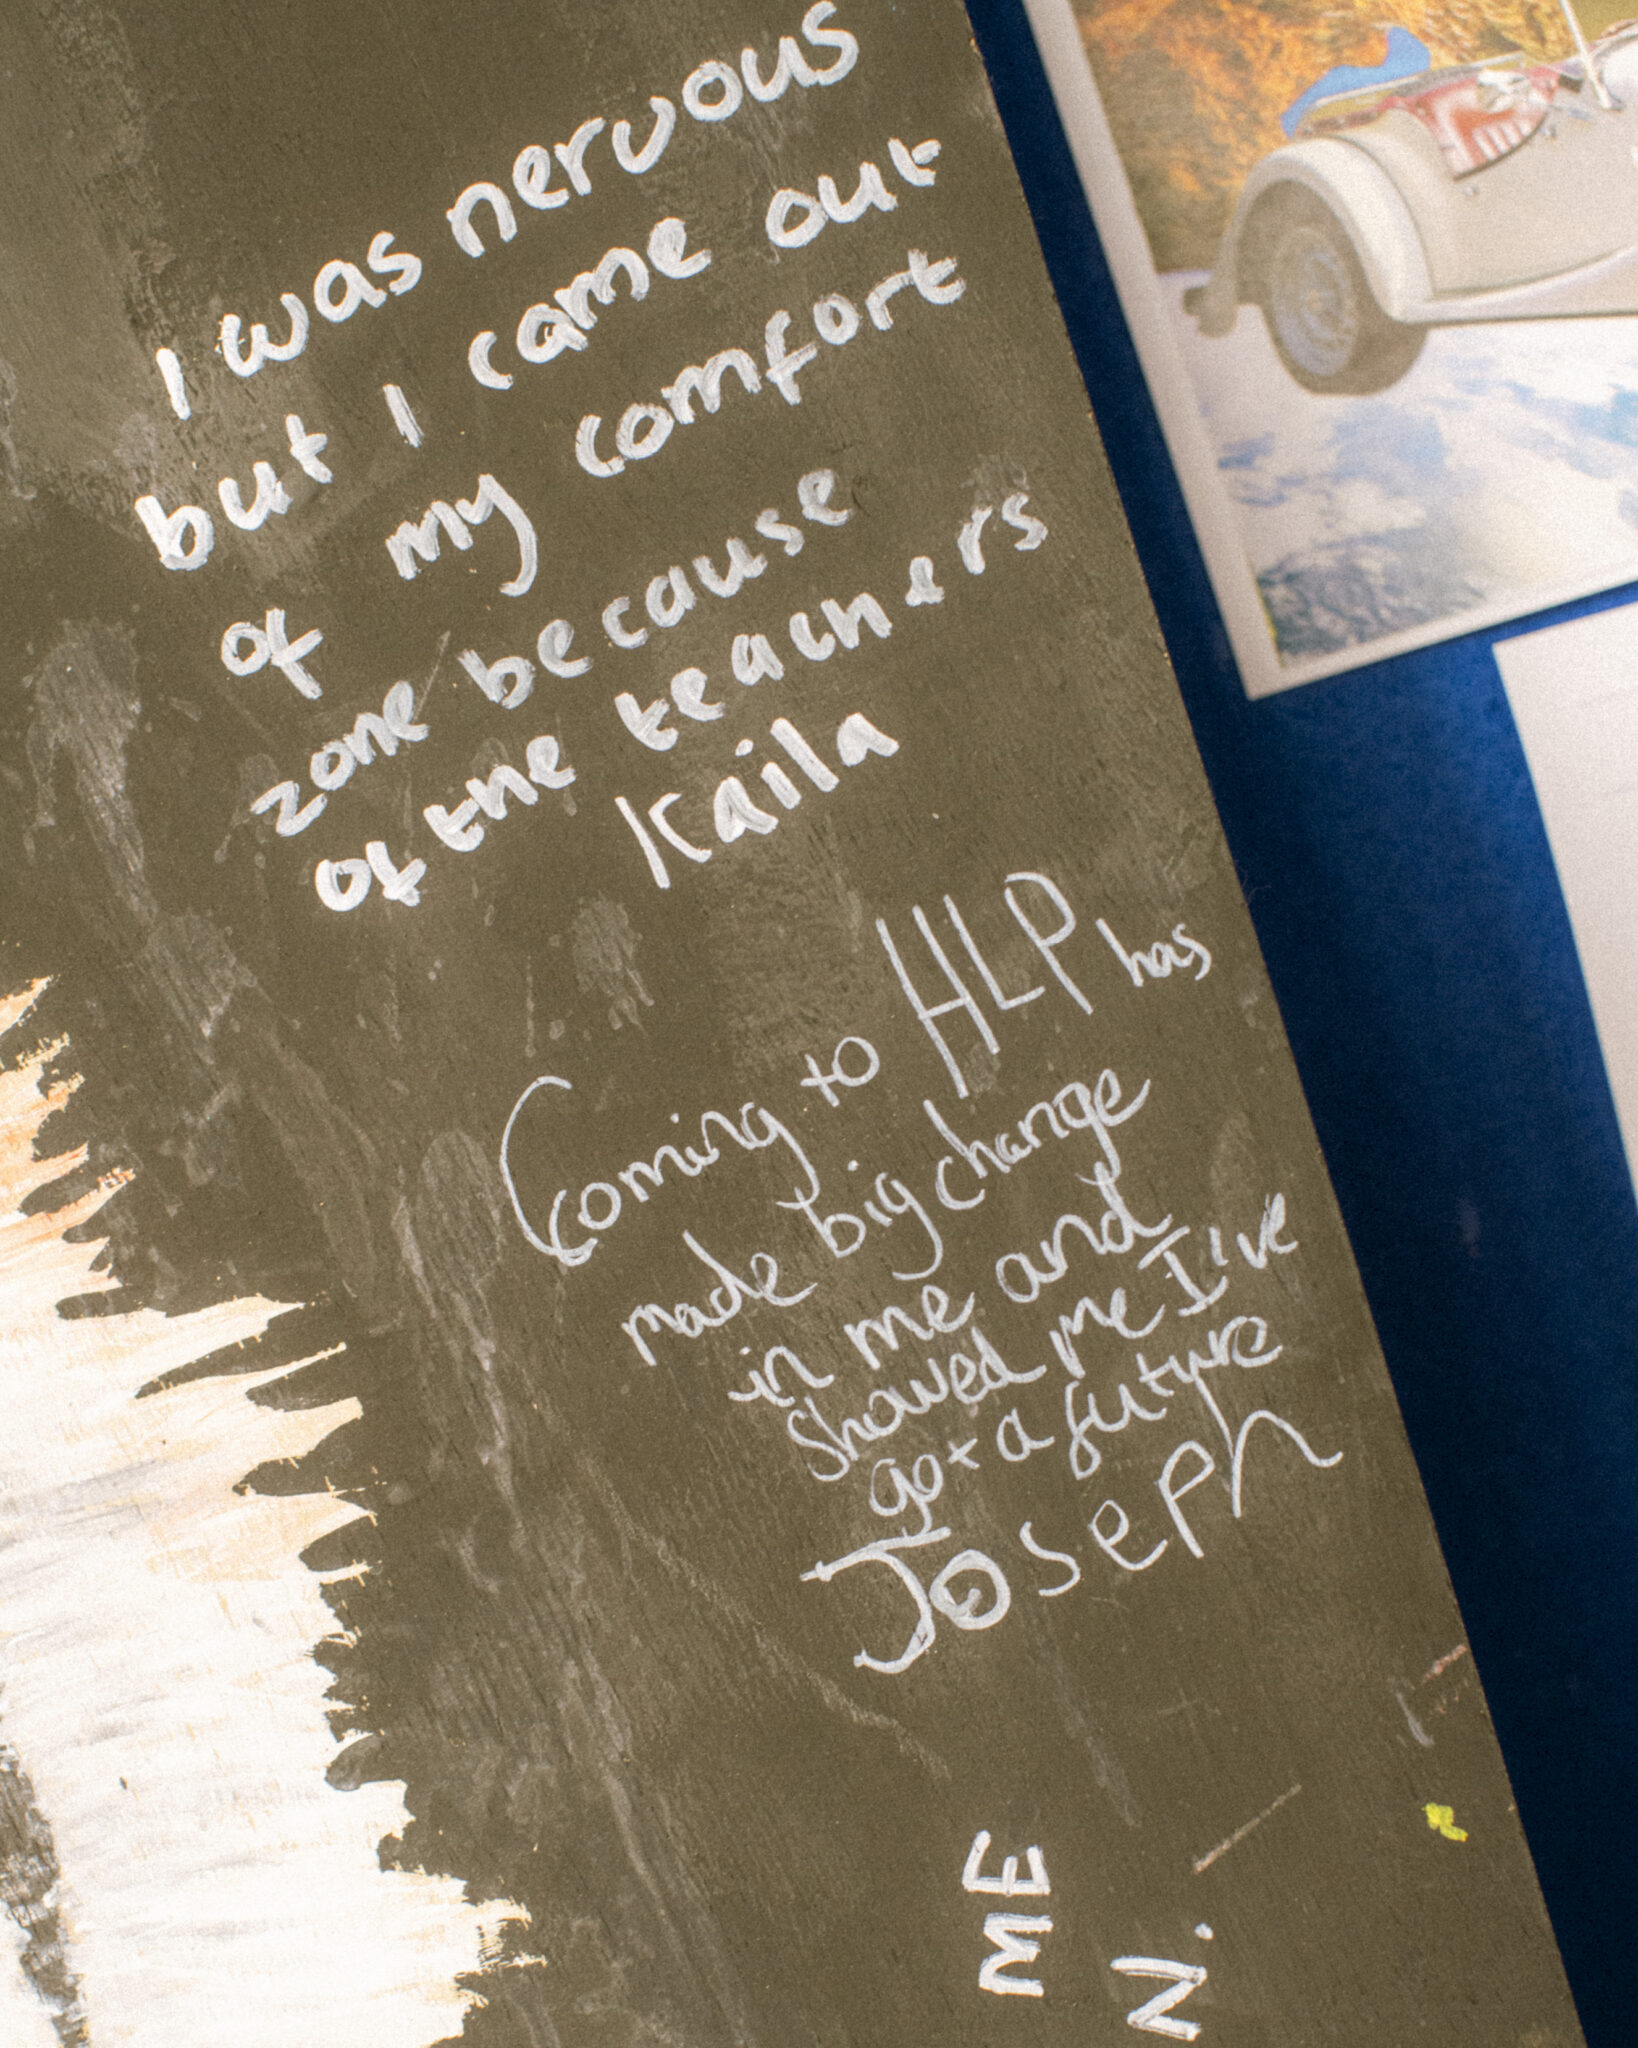 I was nervous
but I came out
of my comfort
zone because
of the teachers
Kaila
Coming to HLP has
made big change
in me and
showed me I've
got a future
Joseph
ME
N.